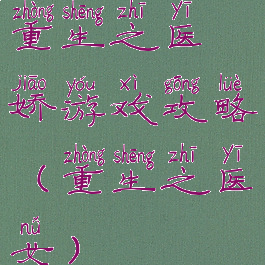 zhòng shēng zhī yī
重生之医
jiāo yóu xì gōng lüè
娇游戏攻略
zhòng shēng zhī yī
（重生之医
nǚ
女）